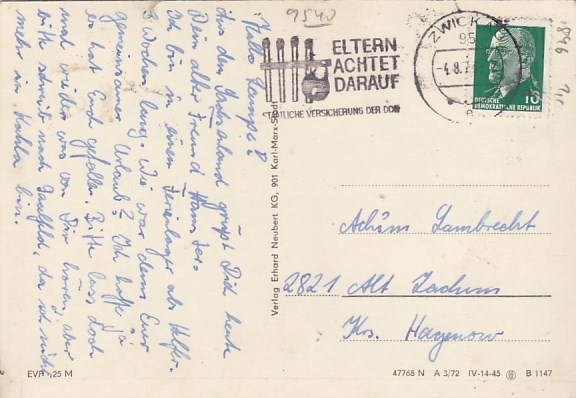 9540
1846
ZWICKAU
95
-4.8.7
ELTERN
ACHTET
DARAUF
STAATLICHE VERSICHERUNG DER DDR
DEUTSCHE
DEMOKRATISCHE REPUBLIK
10
Hallo
aus dem grüßt Dich heute
Dein alter Freund
Ich bin in einem Ferienlager als Helfer
3 Wochen lang. Wie war denn Euer
gemeinsamer Urlaub? Ich hoffe ja
es hat Euch gefallen. Bitte lass doch
mal wieder was von Dir hören, aber
bitte schreib nach Saalfeld, da ich nicht
mehr in Kahla bin.
Achim Lambrecht
2821 Alt Zachun
Krs. Hagenow
Verlag Erhard Neubert KG, 901 Karl-Marx-Stadt
EVP -,25 M
47768 N A 3/72 IV-14-45 B 1147